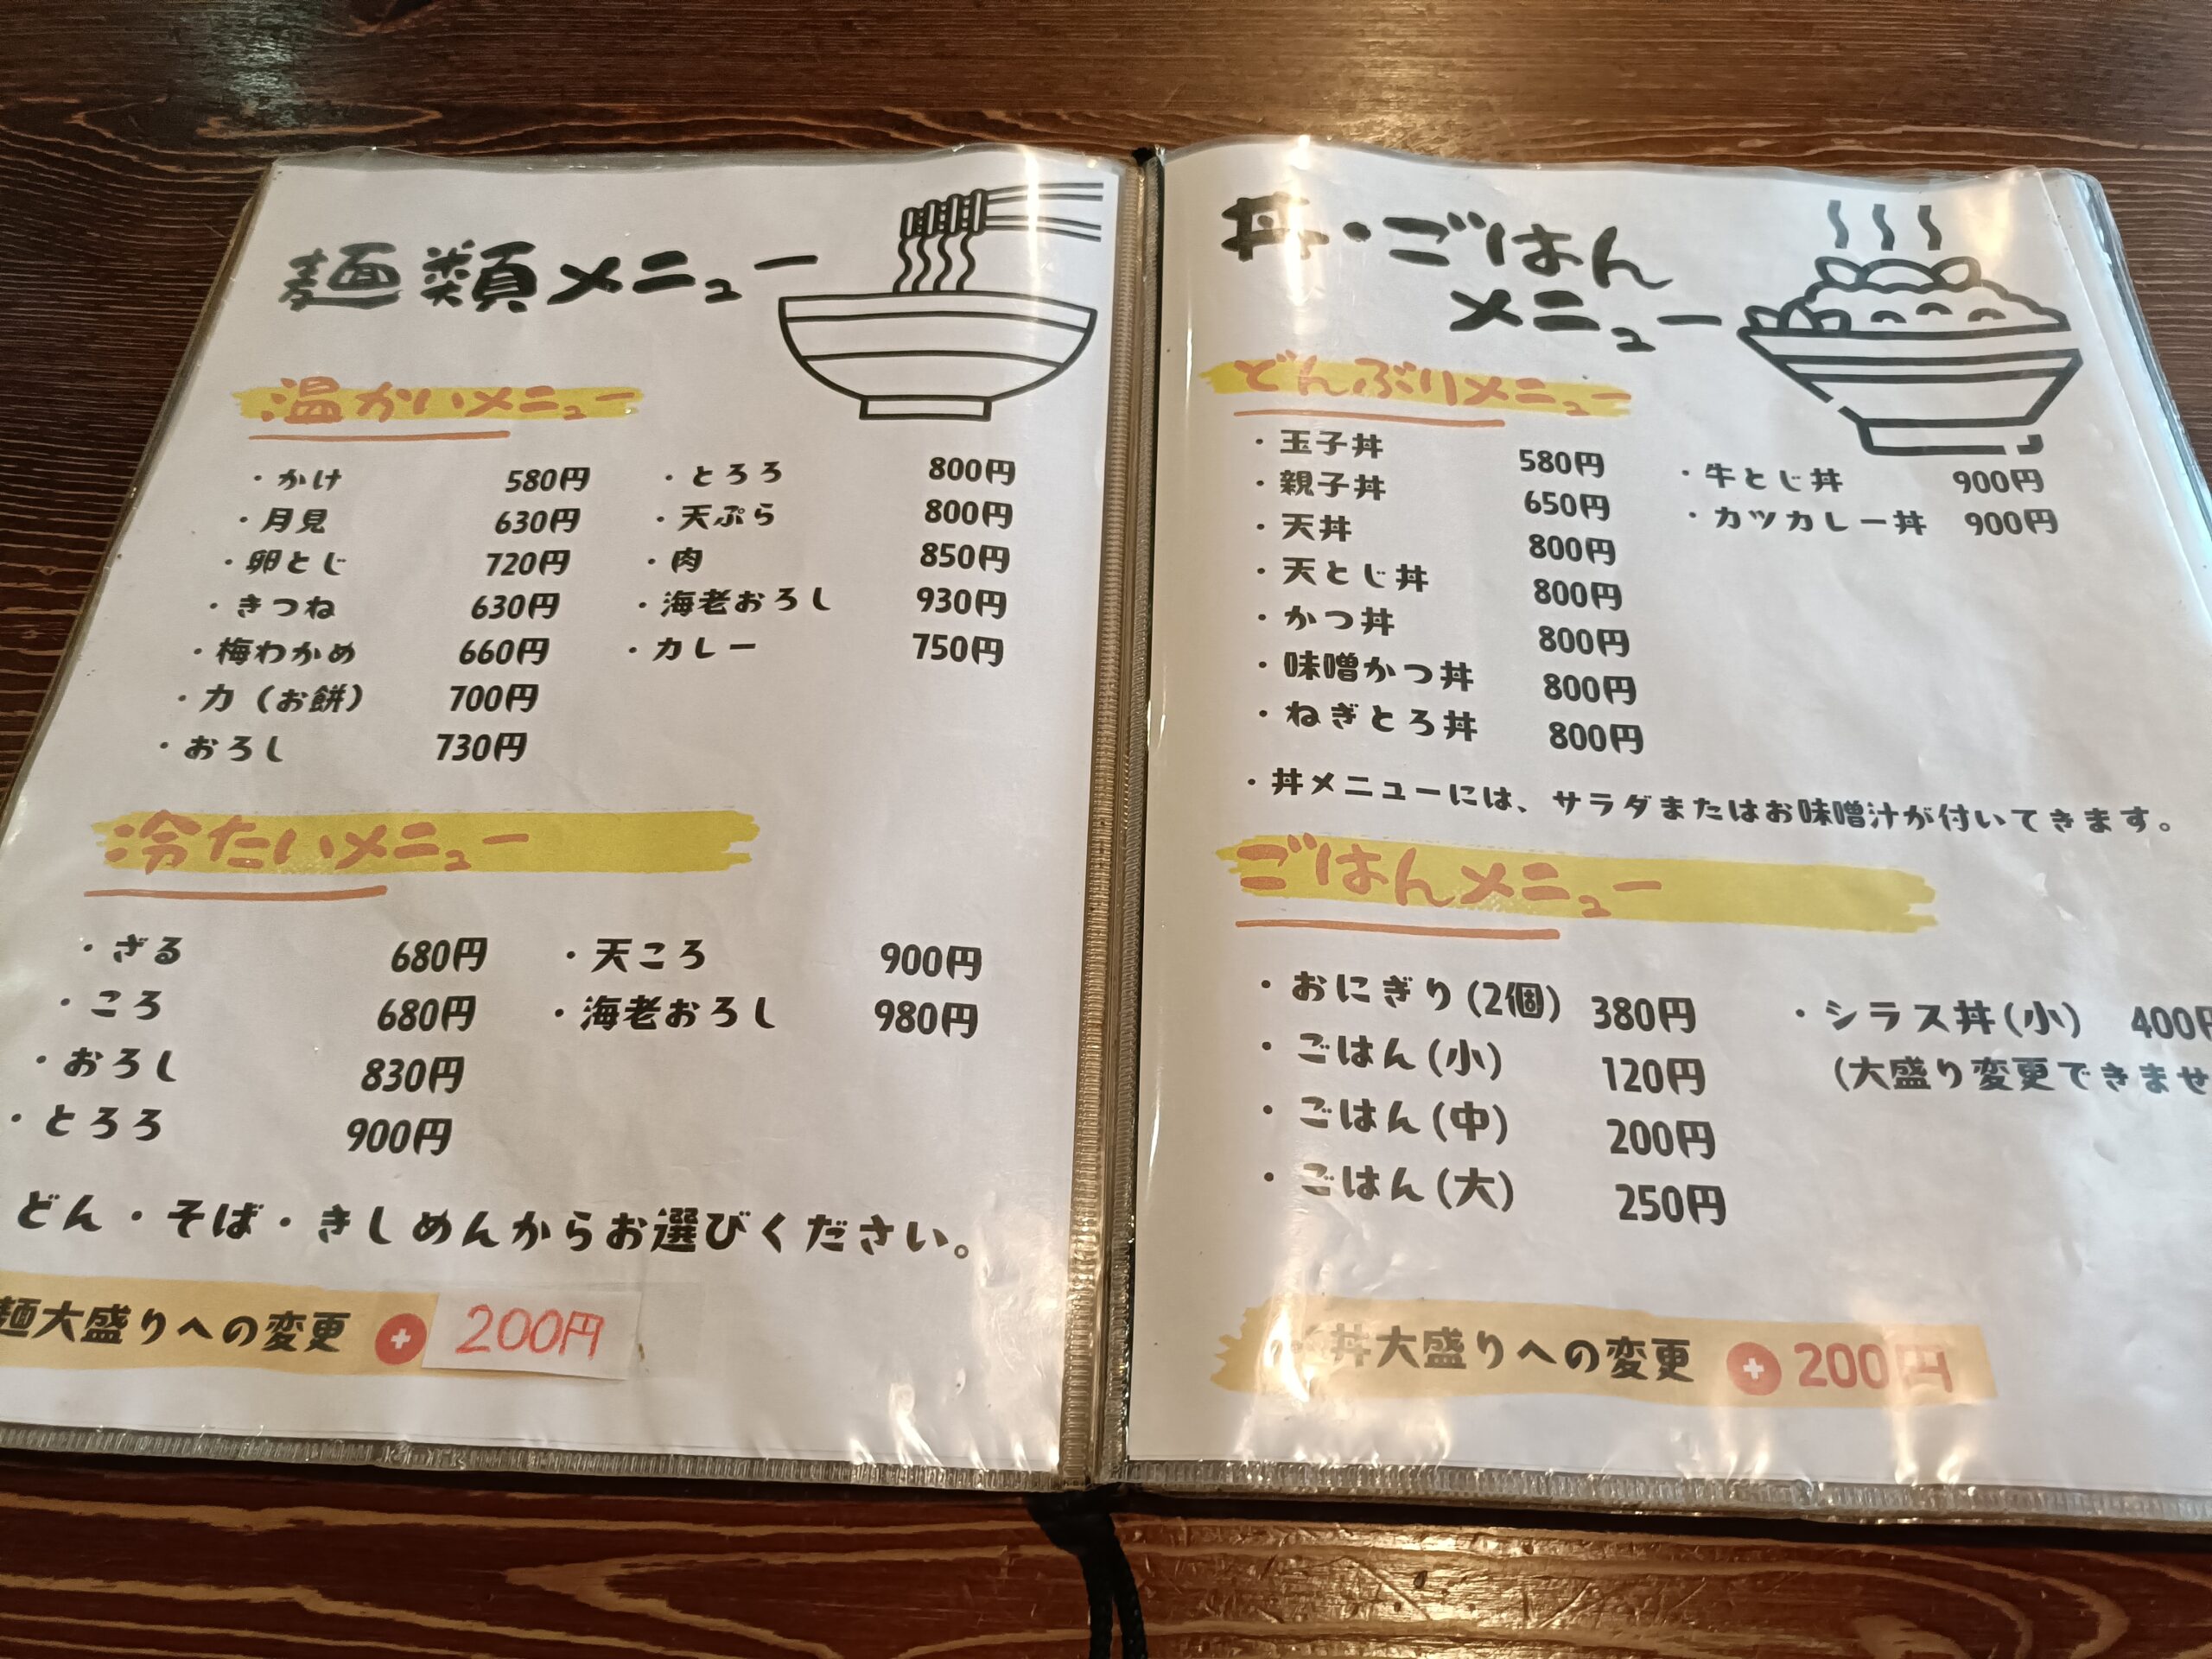 麺類メニュー
温かいメニュー
・かけ 580円
・月見 630円
・卵とじ 720円
・きつね 630円
・梅わかめ 660円
・力（お餅） 700円
・おろし 730円
・とろろ 800円
・天ぷら 800円
・肉 850円
・海老おろし 930円
・カレー 750円
冷たいメニュー
・ざる 680円
・ころ 680円
・おろし 830円
・とろろ 900円
・天ころ 900円
・海老おろし 980円
どん・そば・きしめんからお選びください。
麺大盛りへの変更 + 200円
丼・ごはん
メニュー
どんぶりメニュー
・玉子丼 580円
・親子丼 650円
・天丼 800円
・天とじ丼 800円
・かつ丼 800円
・味噌かつ丼 800円
・ねぎとろ丼 800円
・牛とじ丼 900円
・カツカレー丼 900円
・丼メニューには、サラダまたはお味噌汁が付いてきます。
ごはんメニュー
・おにぎり(2個) 380円
・ごはん(小) 120円
・ごはん(中) 200円
・ごはん(大) 250円
・シラス丼(小) 400円
(大盛り変更できませ
丼大盛りへの変更 + 200円